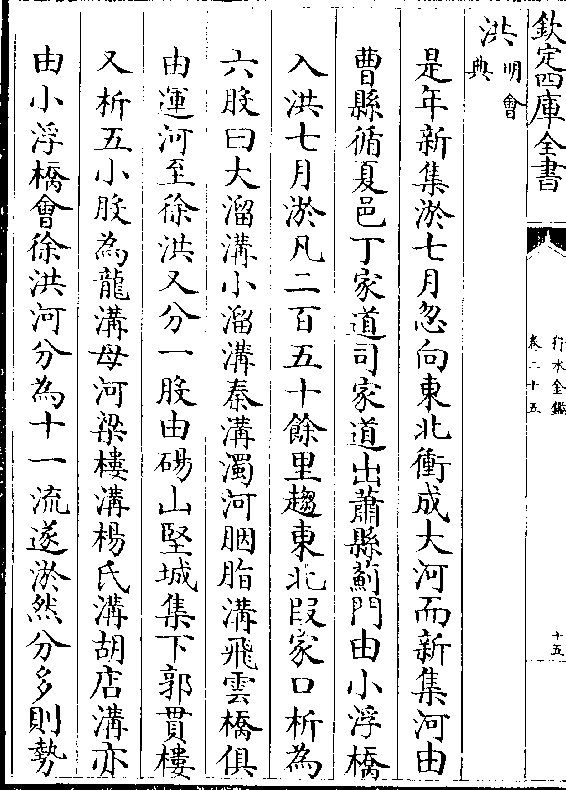 欽定四庫全書
行水金鑑
卷二十五
十五
洪明會典
是年新集淤七月忽向東北衝成大河而新集河由
曹縣循夏邑丁家道司家道出蕭縣薊門由小浮橋
入洪七月淤凡二百五十餘里趨東北段家口析為
六股曰大溜溝小溜溝秦溝濁河胭脂溝飛雲橋俱
由運河至徐洪又分一股由碭山堅城集下郭貫樓
又析五小股為龍溝母河梁樓溝楊氏溝胡店溝亦
由小浮橋會徐洪河分為十一流遂淤然分多則勢